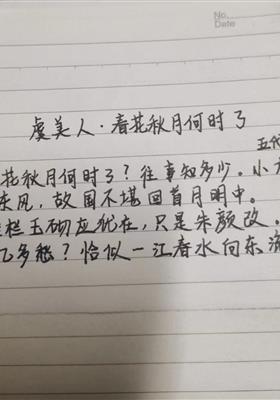 No.
Date
虞美人·春花秋月何时了
五代
花秋月何时了？往事知多少。小
东风，故国不堪回首月明中。
栏玉砌应犹在，只是朱颜改。
几多愁？恰似一江春水向东流